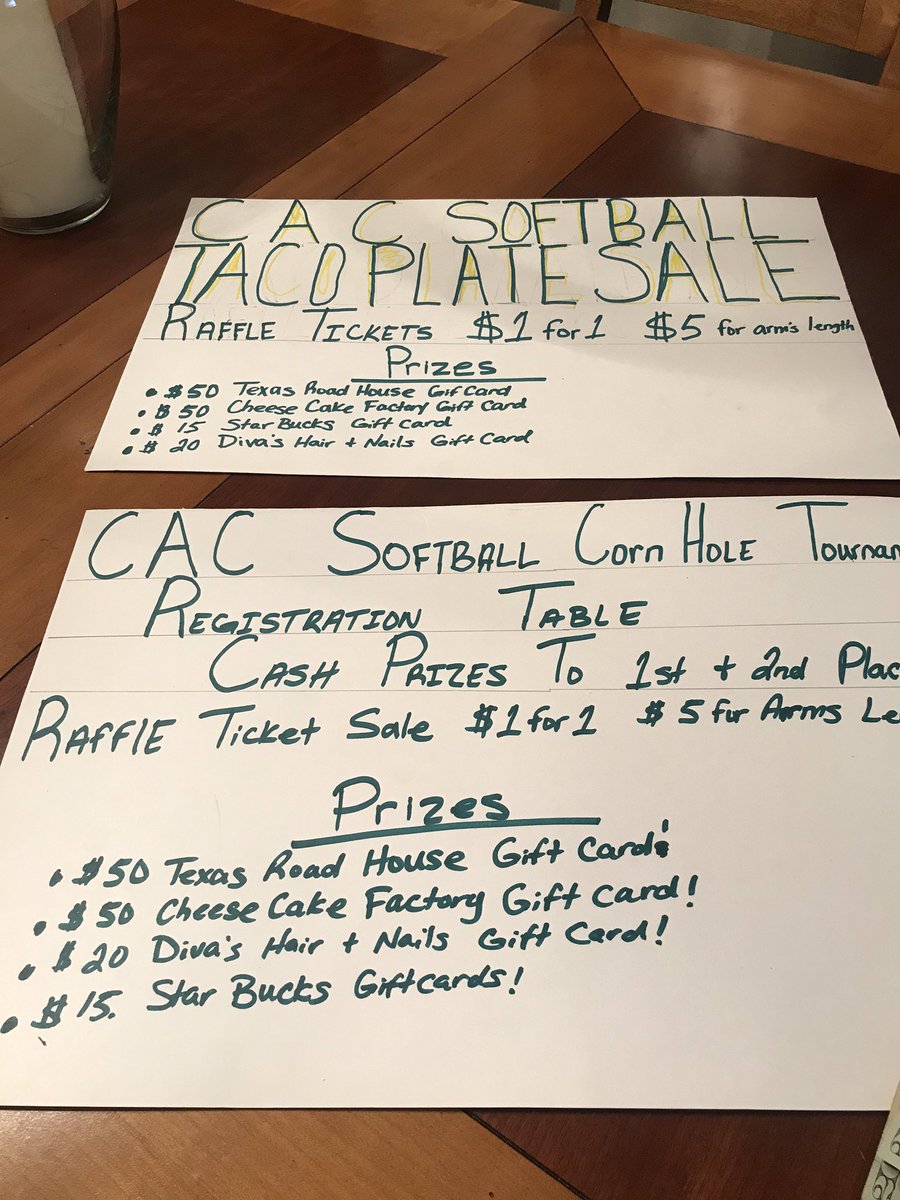 CAC SOFTBALL
TACO PLATE SALE
RAFFLE TICKETS $1 for 1 $5 for arm's length
Prizes
• $50 Texas Road House Gif Card
• $50 Cheese Cake Factory Gift Card
• $ 15 Star Bucks Gift Card
• $ 20 Diva's Hair + Nails Gift Card
CAC SOFTBALL Corn HOLE Tournam
REGISTRATION TABLE
CASH PRIZES TO 1st + 2nd Plac
RAFFlE Ticket Sale $1 for 1 $5 fur Arms Le
Prizes
• $50 Texas Road House Gift Card!
• $50 Cheese Cake Factory Gift Card!
• $20 Diva's Hair + Nails Gift Card!
• $15. Star Bucks Giftcards!